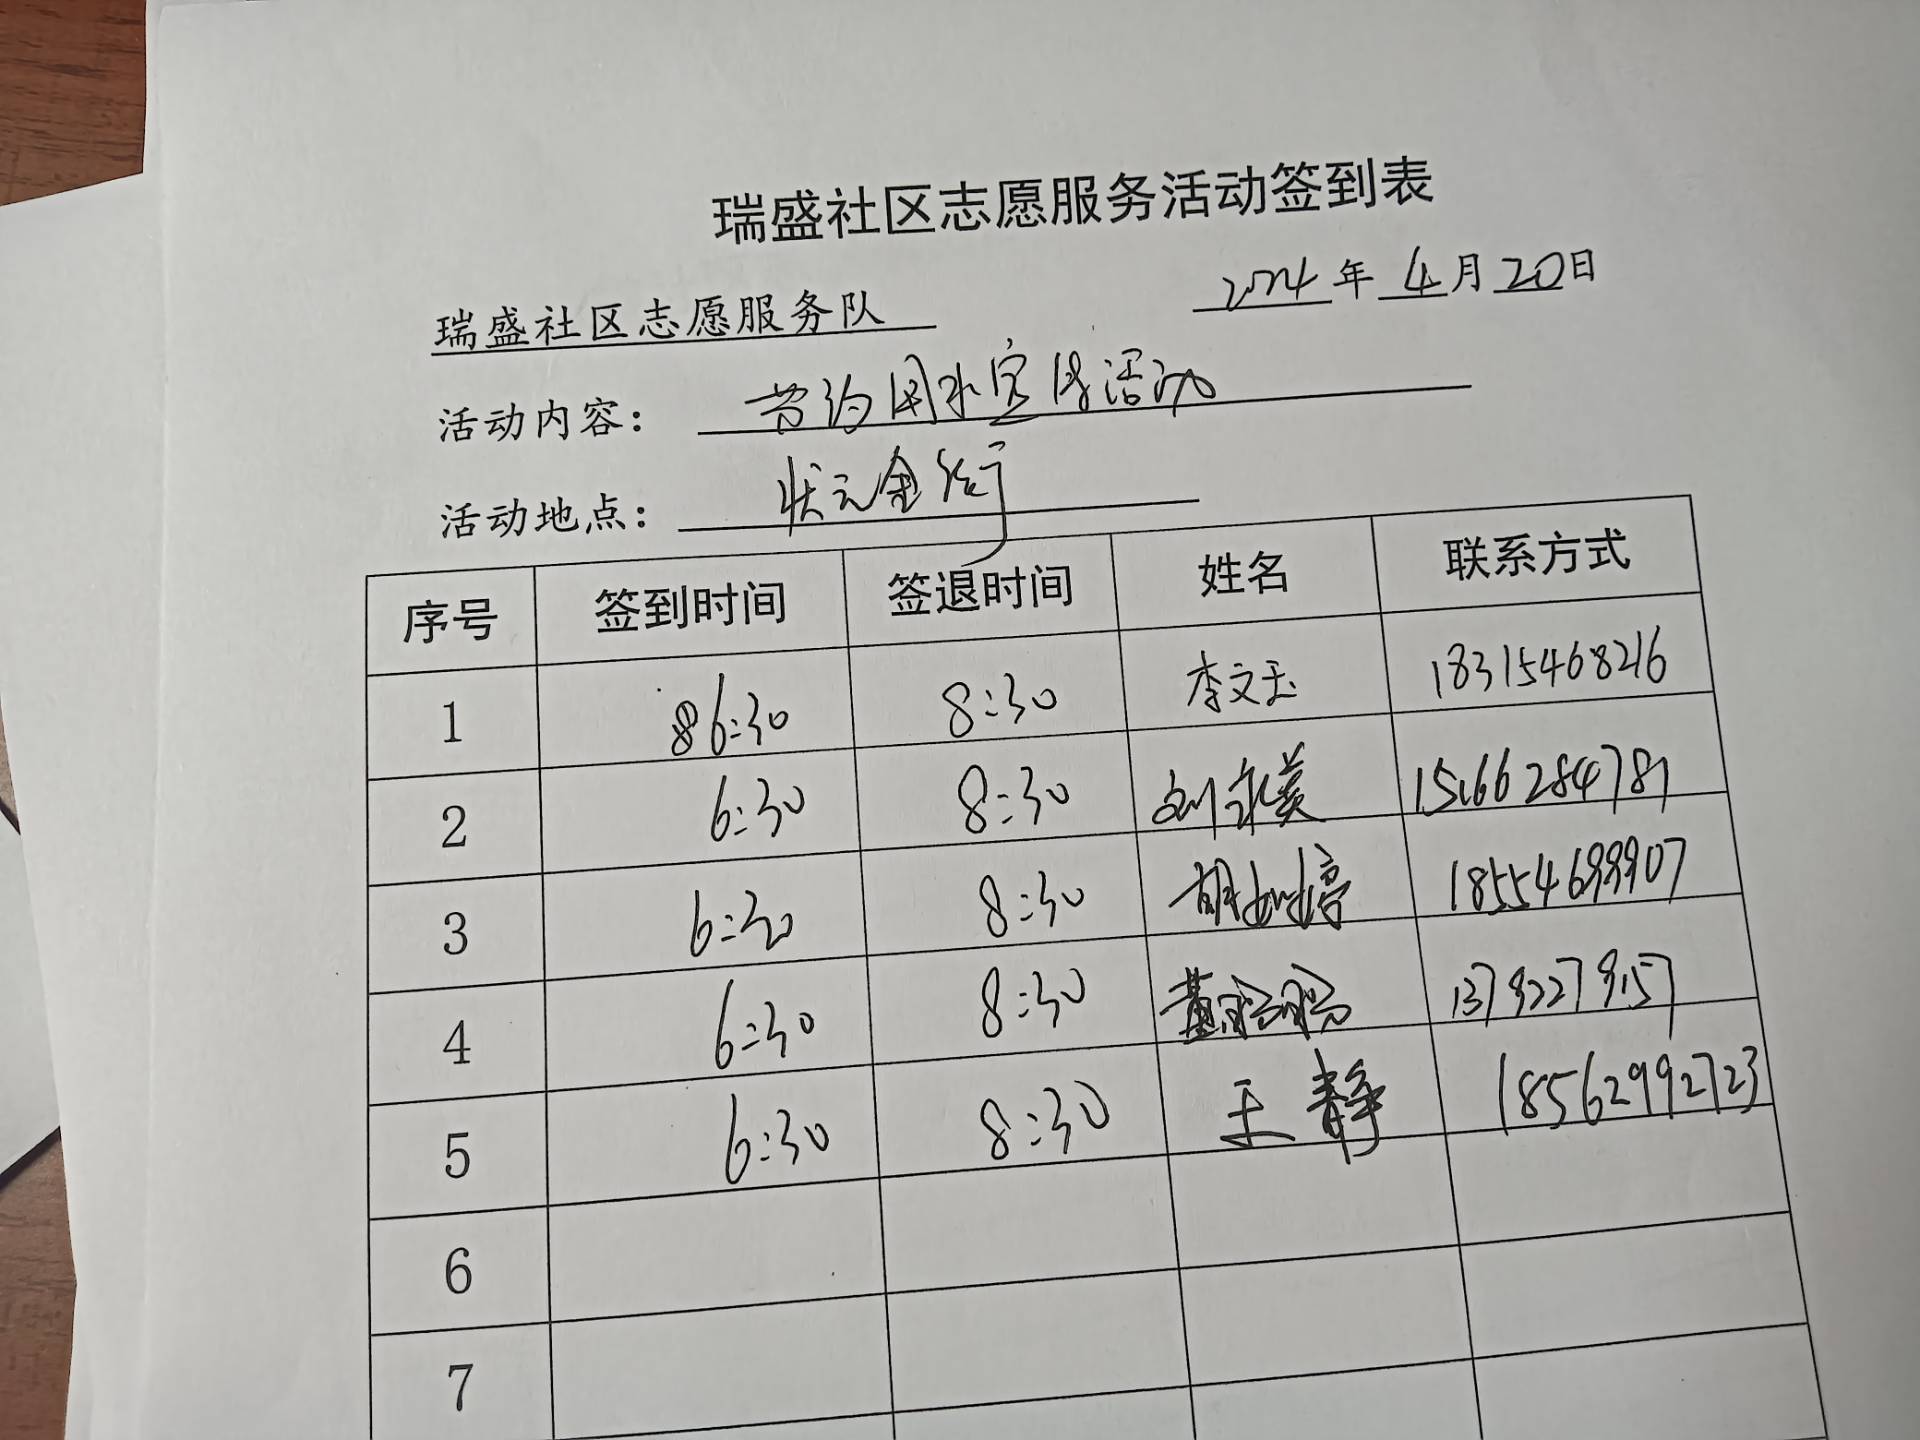 瑞盛社区志愿服务活动签到表
瑞盛社区志愿服务队 2024年4月20日
活动内容： 节约用水宣传活动
活动地点： 状元金街
序号 签到时间 签退时间 姓名 联系方式
1 86:30 8:30 李文玉 18315468216
2 6:30 8:30 刘永美 15166284781
3 6:30 8:30 胡婷婷 18554699907
4 6:30 8:30 董 13792279157
5 6:30 8:30 王静 18562992723
6
7